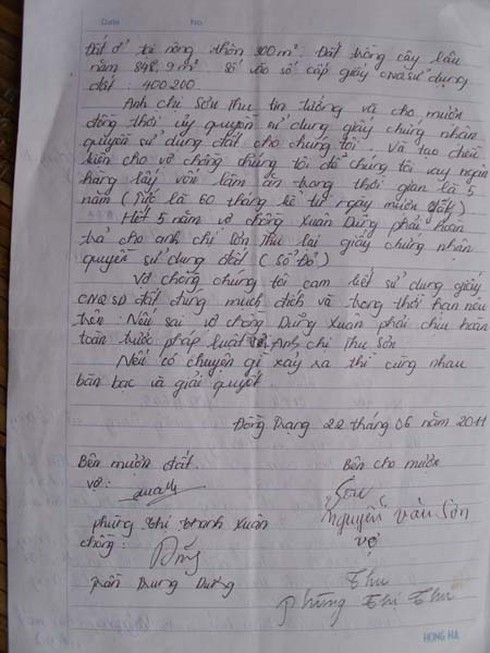 Date No.
Đất ở tại nông thôn 300m². Đất trồng cây lâu
năm 848,9m² Số vào sổ cấp giấy CNQ sử dụng
đất : 400200
Anh chị Sơn Thu tin tưởng và cho mượn
đồng thời ủy quyền sử dụng giấy chứng nhận
quyền sử dụng đất cho chúng tôi. Và tạo điều
kiện cho vợ chồng chúng tôi để chúng tôi vay ngân
hàng lấy vốn làm ăn trong thời gian là 5
năm (Tức là 60 tháng kể từ ngày mượn đất)
Hết 5 năm vợ chồng Xuân Dũng phải hoàn
trả cho anh chị Sơn Thu lại giấy chứng nhận
quyền sử dụng đất (Sổ Đỏ)
Vợ chồng chúng tôi cam kết sử dụng giấy
CNQSD đất đúng mục đích và trong thời hạn nêu
trên. Nếu sai vợ chồng Dũng Xuân phải chịu hoàn
toàn trước pháp luật về Anh chị Thu Sơn
Nếu có chuyện gì xảy ra thì cùng nhau
bàn bạc và giải quyết.
22 tháng 06 năm 2011
Bên mượn đất. Bên cho mượn
vợ: Sơn
Nguyễn Văn Sơn
phùng thị thanh Xuân vợ
chồng:
Trần Trung Dũng Thu
Phùng Thị Thu
HONG HA